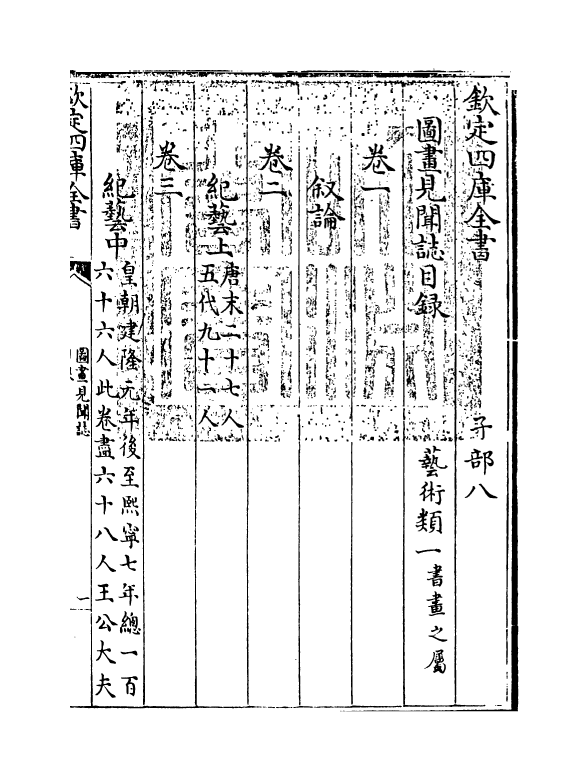 欽定四庫全書　子部八
圖畫見聞誌目録　藝術類一書畫之屬
卷一
叙論
卷二
紀藝上
唐末二十七人
五代九十一人
卷三
紀藝中
皇朝建隆元年後至熙寧七年總一百
六十六人此卷盡六十八人王公大夫
欽定四庫全書
圖畫見聞誌
一